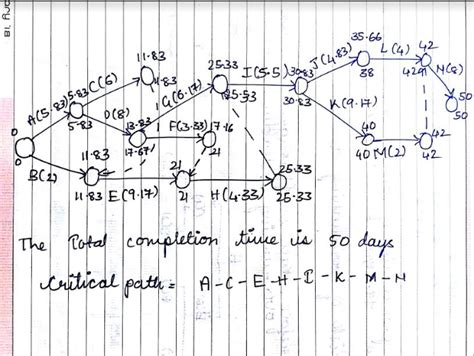 11.83
25.33
35.66
L(4)
42
J(4.83)
A(5.83)
5.83
C(6)
11.83
G(6.17)
I(5.5)
30.83
38
42
N(8)
0
5.83
D(8)
13.83
F(3.33)
17.16
25.53
30.83
K(9.17)
50
50
0
11.83
17.67
21
40
42
B(2)
21
25.33
40
M(2)
42
11.83
E(9.17)
21
H(4.33)
25.33
The Total completion time is 50 days
Critical path = A-C-E-H-I-K-M-N